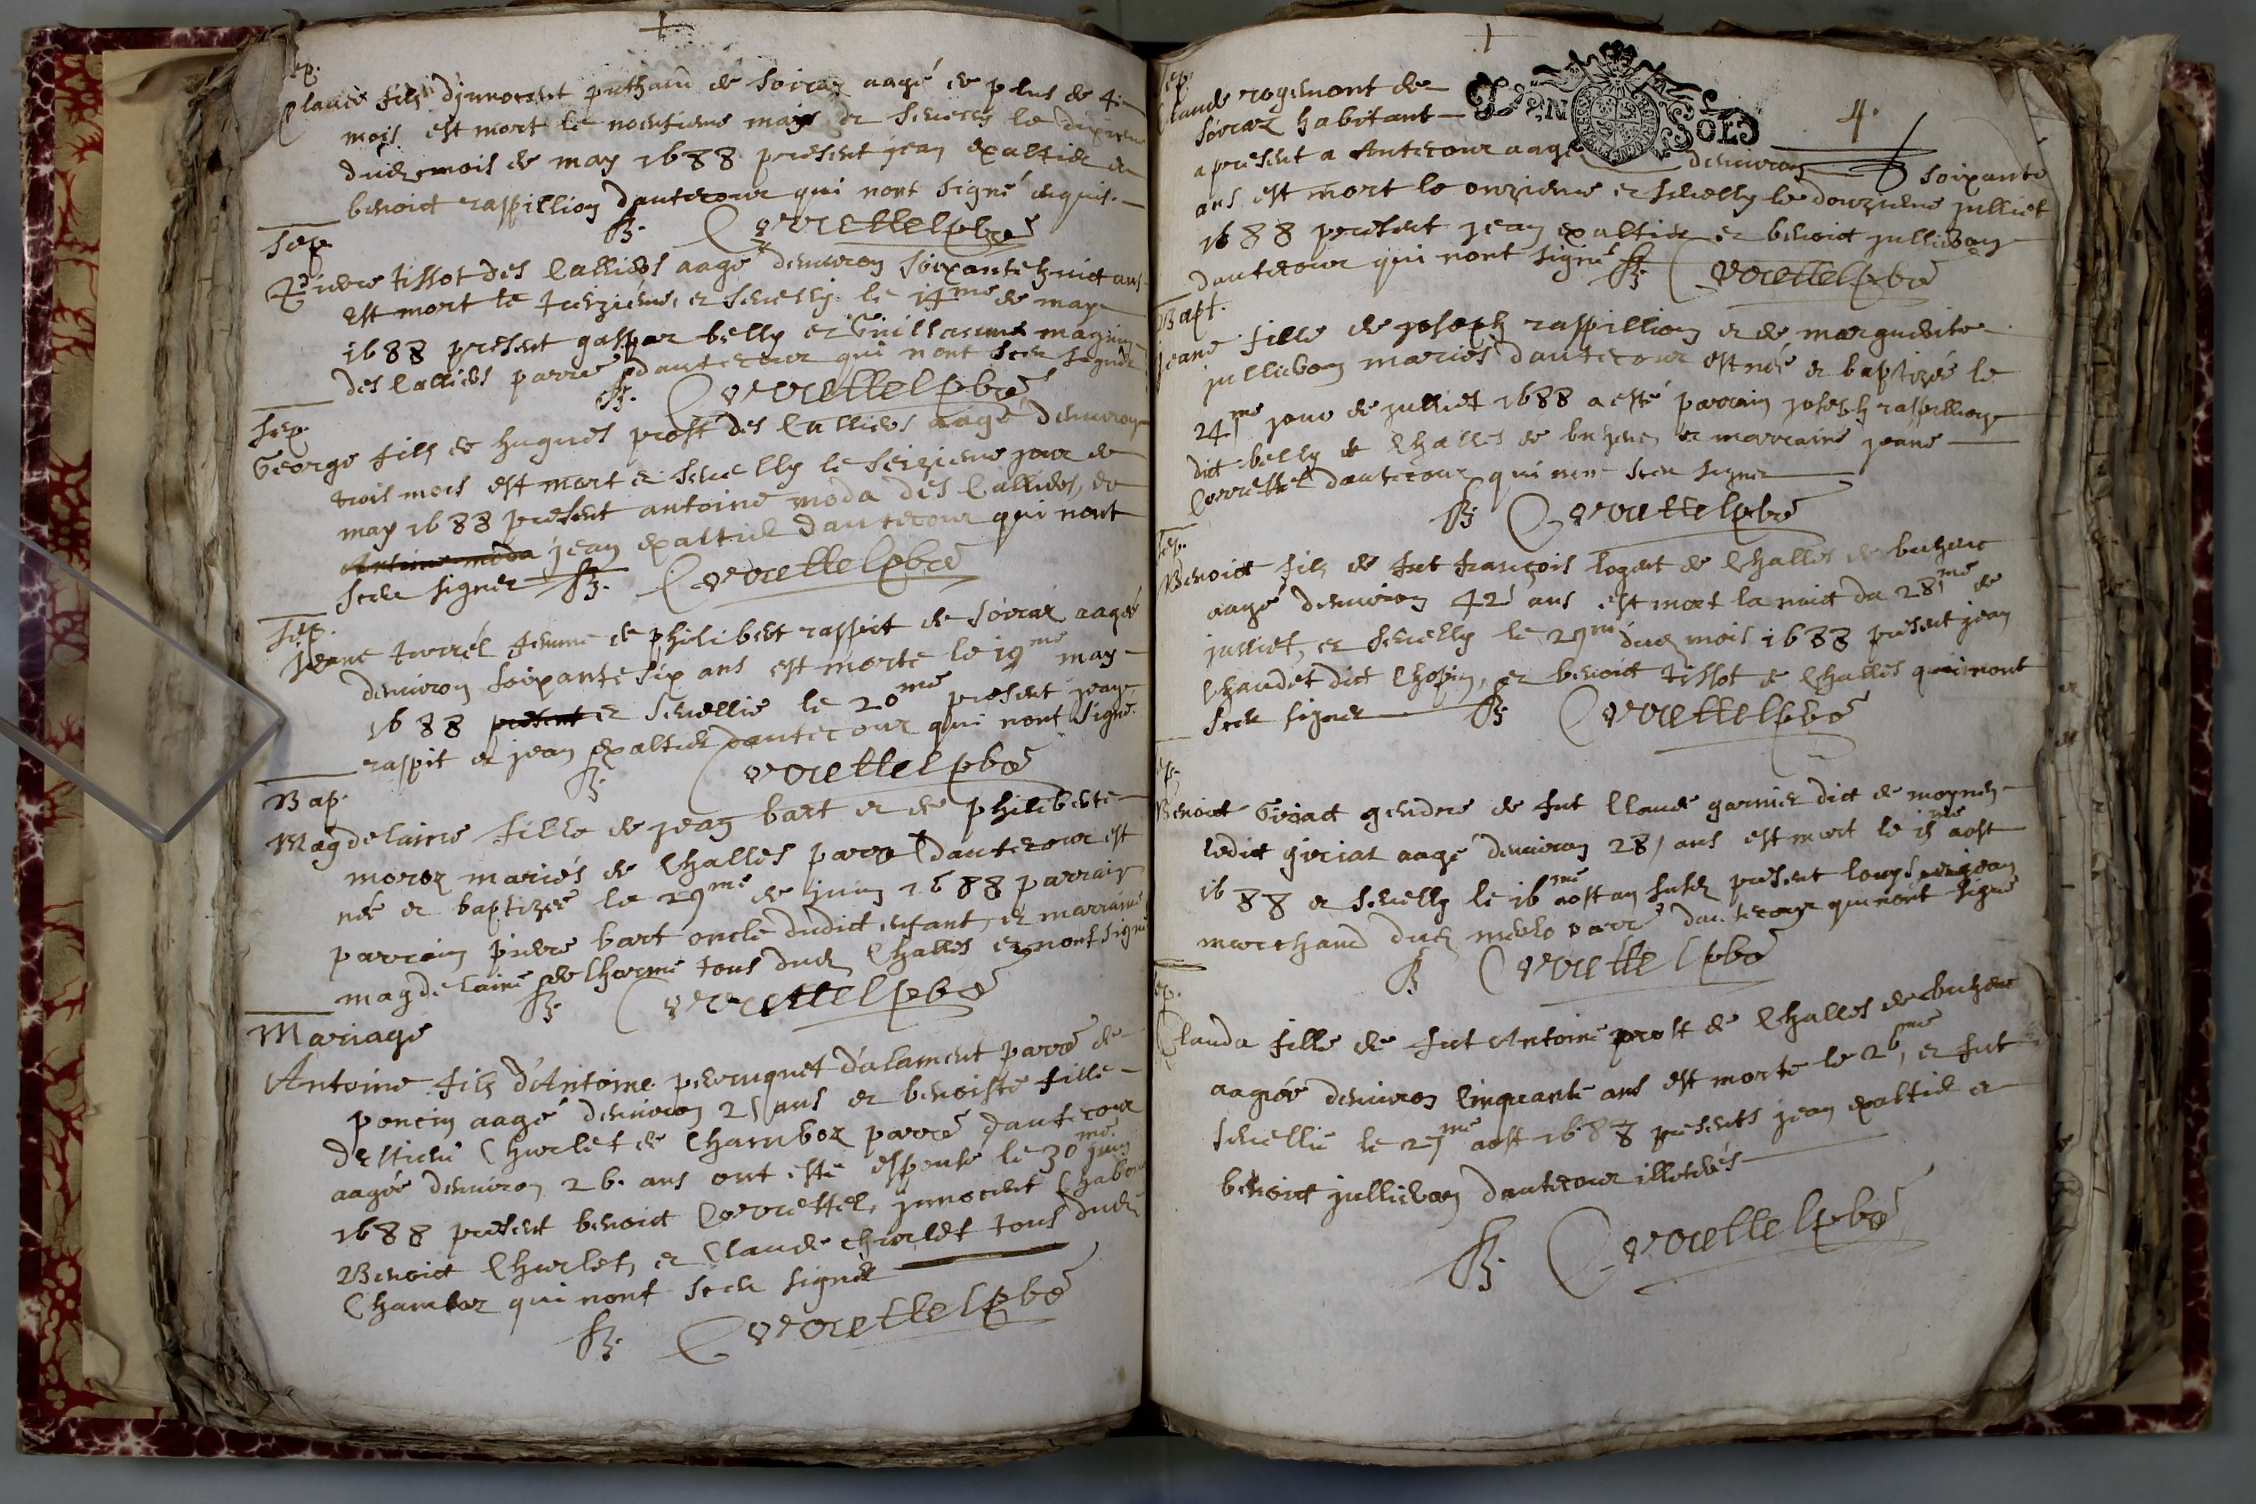 Sep.
Claude fils d'jnnocent puthaud de soiraz aagé de plus de 4.
mois est mort le neufieme may et sevelly le dixieme
dud. mois de may 1688 present jean expaltier et
benoict raspillion dautecour qui nont signé enquis.
Sep.
Pierre tissot des Calliers aagé denviron soixante huict ans
est mort le treizieme, et sevelly le 14me de may
1688 present gaspar belly et Guillaume magnin
des Calliers parre dautecour qui nont sceu signer
Sep.
George fils de hugues prost des Calliers aagé denviron
trois mois est mort et sevelly le seizieme jour de
may 1688 present antoine moda des Calliers, et
Antoine moda jean expaltier dautecour qui nont
sceu signer
Sep.
Jeane turrel femme de philibert raspit de soiraz aagée
denviron soixante six ans est morte le 19me may
1688 present et sevellie le 20me present jean
raspit et jean expaltier dautecour qui nont signé.
Bap.
Magdelaine fille de jean bart et de philiberte
moroz mariés de Challes parre dautecour est
née et baptizée le 29me de juin 1688 parrain
parrain pierre bart oncle dudict enfant, et marraine
magdelaine delhorme tous dud. Challes et nont signé
Mariage
Antoine fils d'Antoine perruquet dalament parre de
poncin aagé denviron 25 ans et benoiste fille
destiene Churlet de Chamboz parre dautecour
aagée denviron 26. ans ont esté espousé le 30me juin
1688 present benoict Correttel, jnnocent Chabou
Benoict Churlet, et Claude churlet tous dud.
Chamboz qui nont sceu signer
4.
Sep.
Claude rogemont de
soiraz habitant
a present a Autecour aagé denviron soixante
ans est mort le onzieme et sevelly le douzieme julliet
1688 present jean expaltier et benoict jullieron
dautecour qui nont signé
Bapt.
Jeane fille de joseph raspillion et de marguerite
jullieron mariés dautecour est née et baptizée le
24me jour de julliet 1688 a esté parrain joseph raspillion
dict belly de Challes et marraine jeane
Correttel dautecour qui nont sceu signer
Sep.
Benoict fils de fut françois logert de Challes de
aagé denviron 42 ans est mort la nuict du 28me de
julliet, et sevelly le 29me dud. mois 1688 present jean
Chaudet dict Chopin, et benoict tissot de Challes qui nont
sceu signer
Sep.
Benoict Giriat gendre de fut Claude garnier dict de moynes
ledict giriat aagé denviron 28 ans est mort le 15me aost
1688 et sevelly le 16me aost an susd. present
marchand dud. parre dautecour qui nont signé
Sep.
Clauda fille de fut Antoine prost de Challes de
aagée denviron Cinquante ans est morte le 26me, et fut
sevellie le 27me aost 1688 presents jean expaltier et
benoict jullieron dautecour illeterés